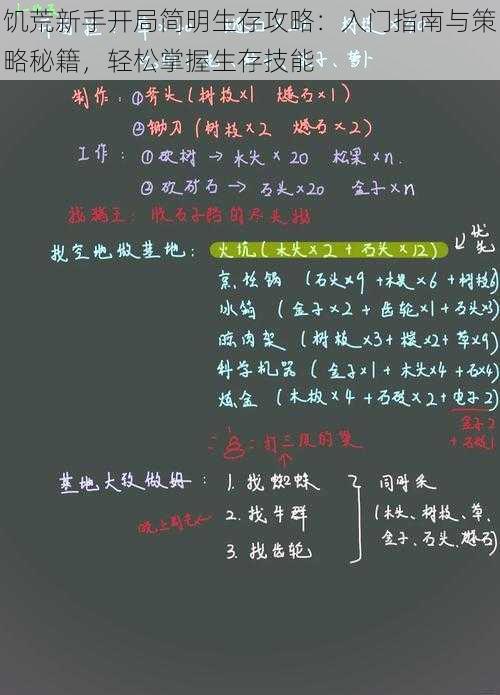 饥荒新手开局简明生存攻略：入门指南与策
略秘籍，轻松掌握生存技能
制作：①斧头（树枝×1 燧石×1）
②锄刀（树枝×2 燧石×2）
工作：①砍树→木头×20 松果×n.
②砍矿石→石头×20 金子×n
找猪王：
找空地做基地：火坑（木头×2+石头×12）优先
烹饪锅（石头×9+木炭×6+树枝6
冰箱（金子×2+齿轮×1+
晾肉架（树枝×3+炭×2+草×9）
科学机器（金子×1+木头×4+石×4）
炼金（木板×4+石砖×2+电子2）
金子2
+石砖1
打三度的巢
基地大致做好：1.找蜘蛛
2.找牛群
3.找齿轮
同时采
（木头、树枝、草、
金子、石头、燧石）
晚上